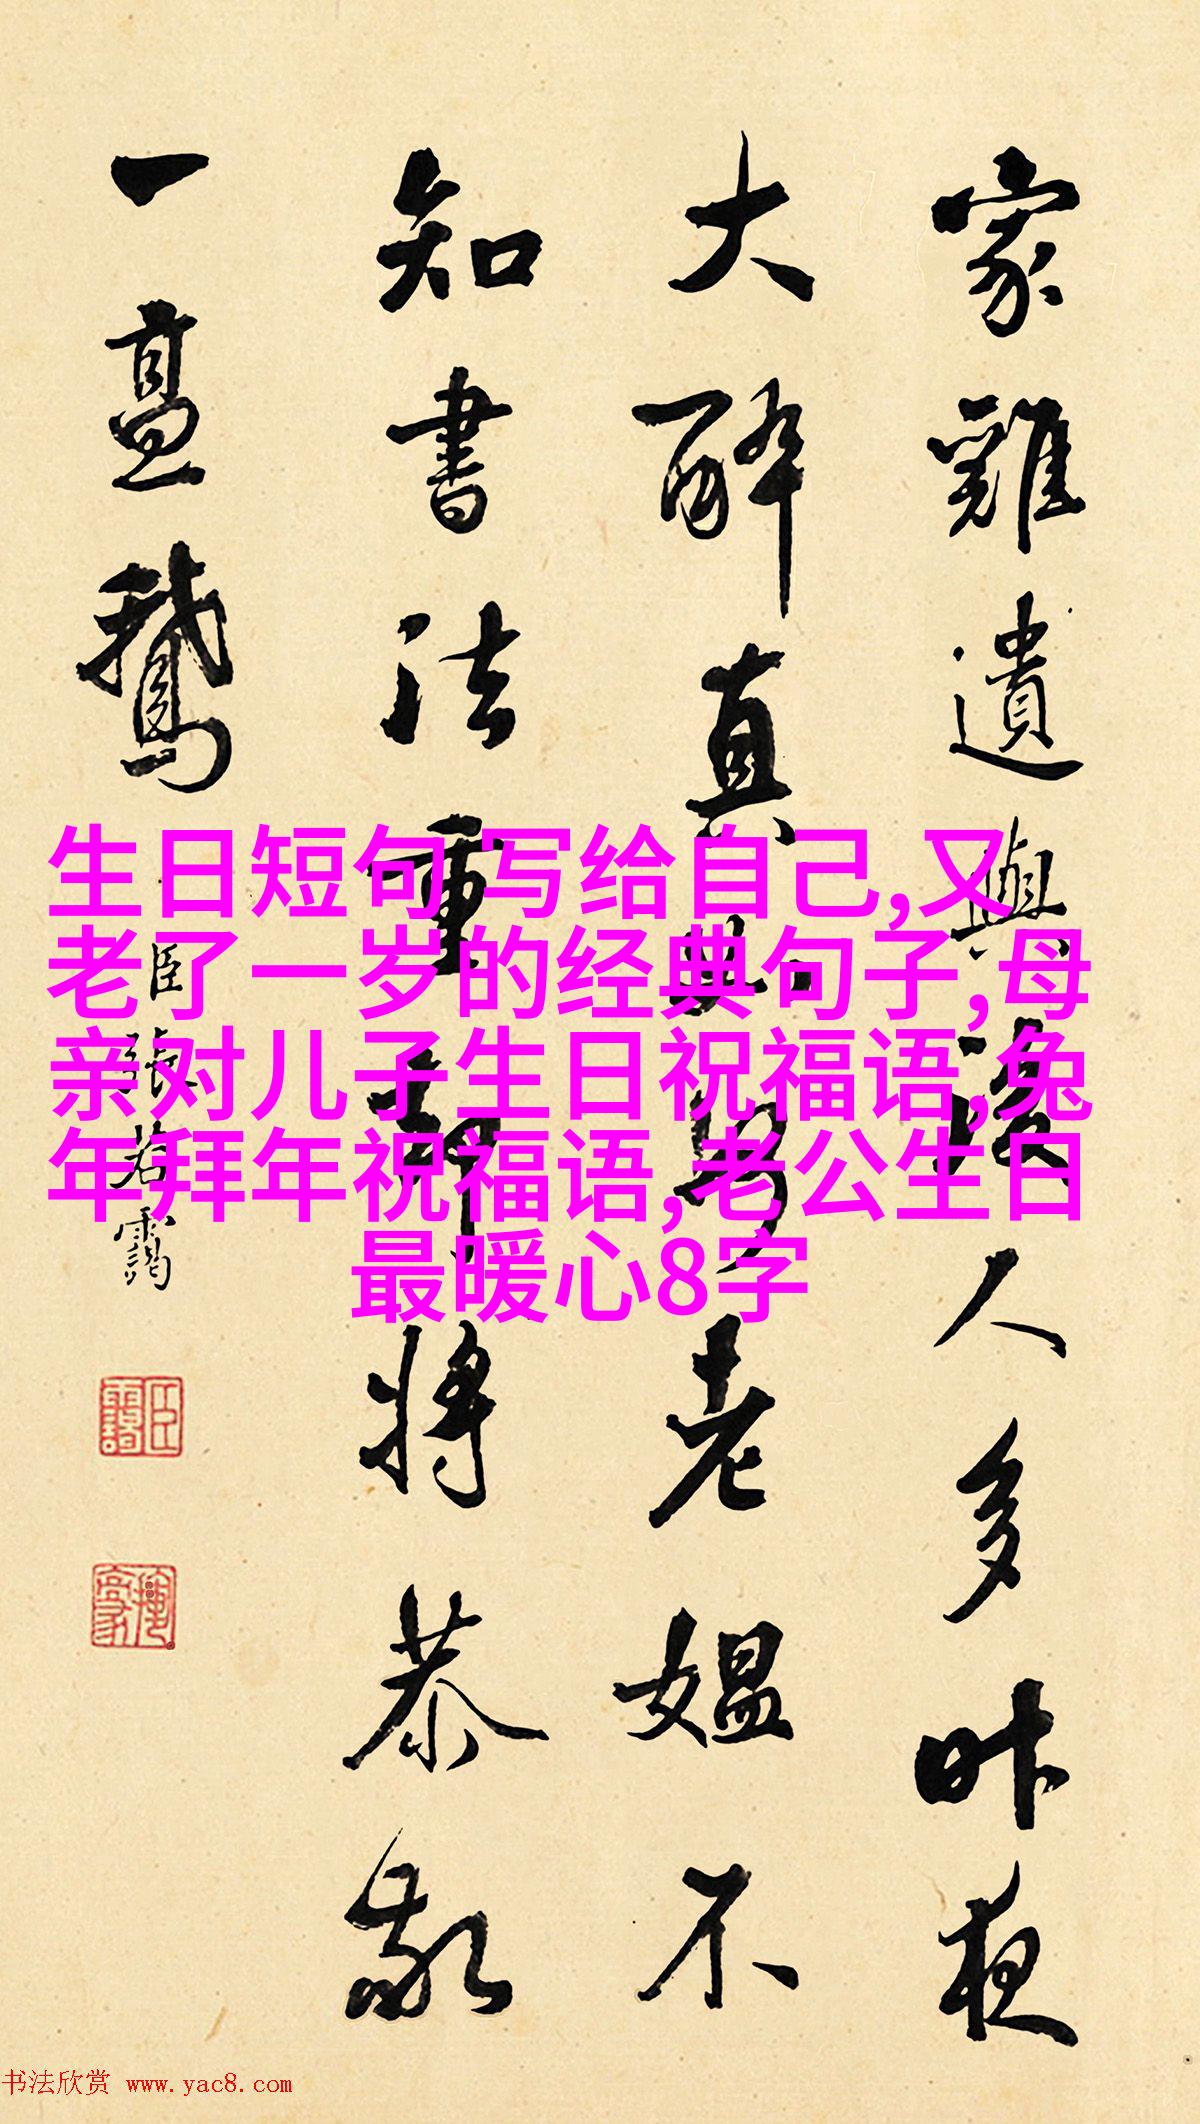 家雞遺與後人多昨夜
大醉真如老媼不
知書法重將恭敬
一鵝
臣張若靄
生日短句 写给自己,又
老了一岁的经典句子,母
亲对儿子生日祝福语,兔
年拜年祝福语,老公生日
最暖心8字
书法欣赏 www.yac8.com